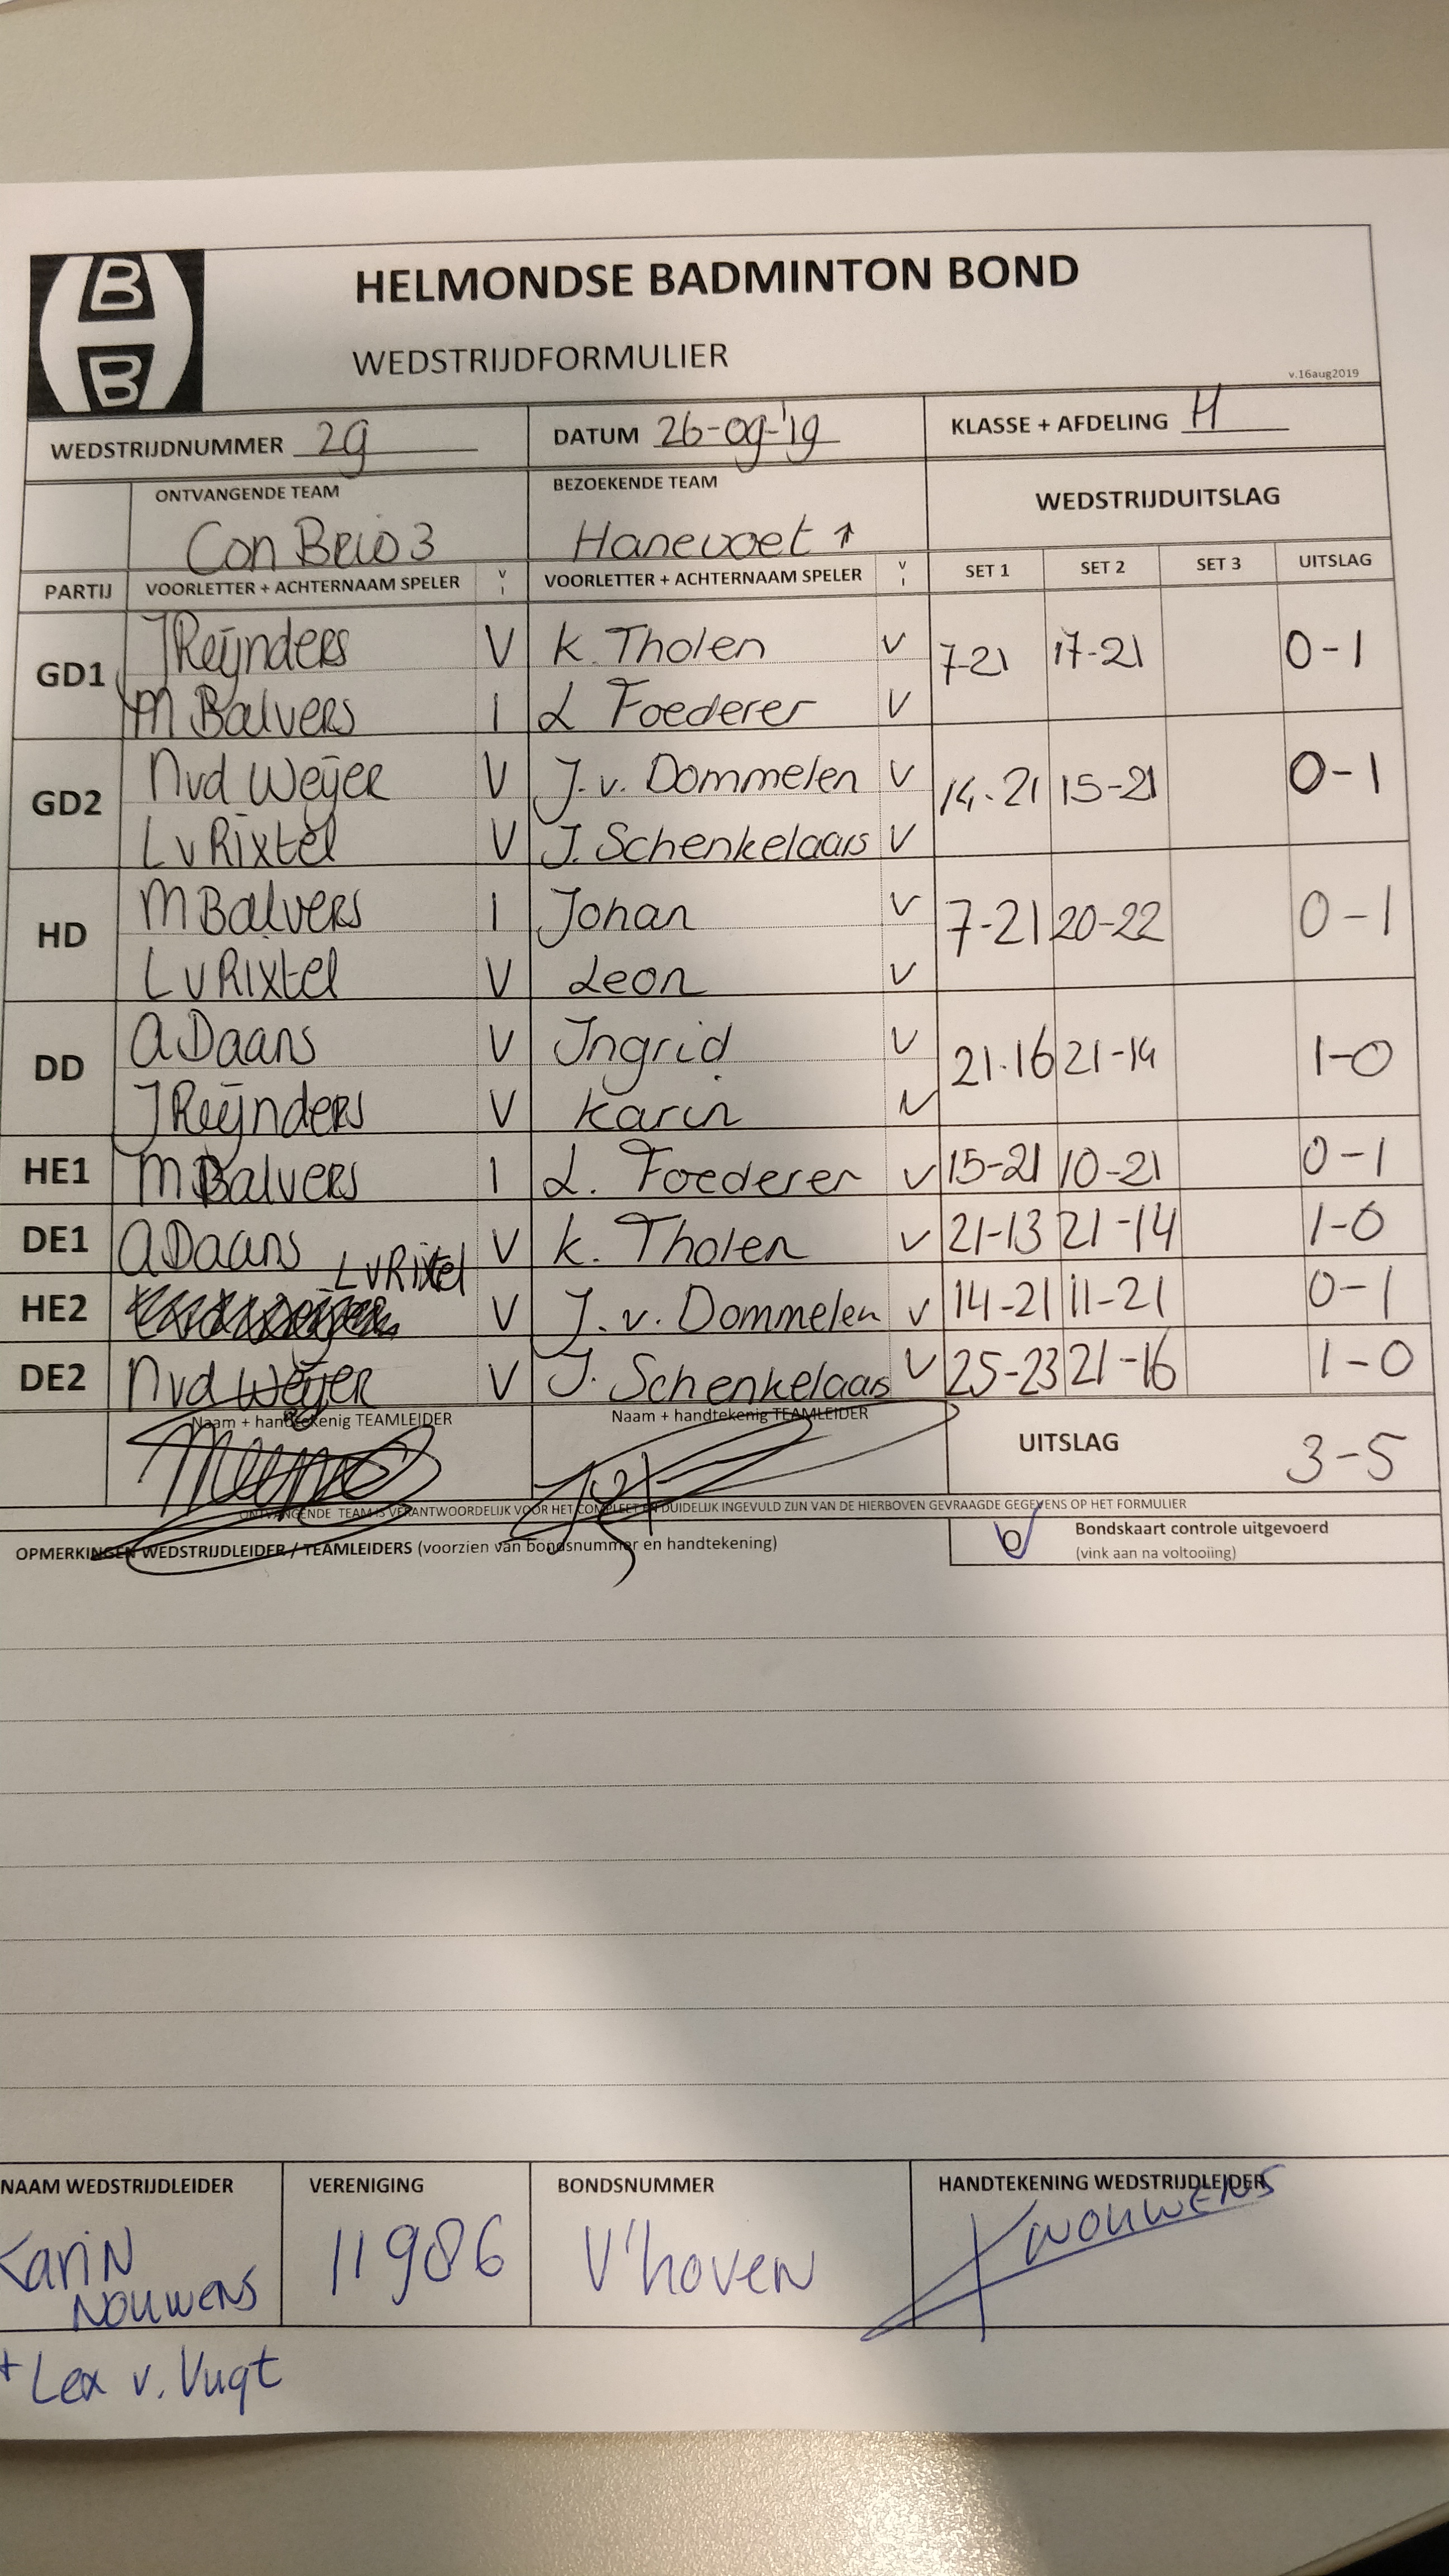 B
B
HELMONDSE BADMINTON BOND
WEDSTRIJDFORMULIER
v.16aug2019
WEDSTRIJDNUMMER 29 DATUM 26-09-'19 KLASSE + AFDELING H
ONTVANGENDE TEAM BEZOEKENDE TEAM WEDSTRIJDUITSLAG
Con Brio 3 Hanevoet ↑
PARTIJ VOORLETTER + ACHTERNAAM SPELER V I VOORLETTER + ACHTERNAAM SPELER V I SET 1 SET 2 SET 3 UITSLAG
GD1 J Reijnders V K. Tholen V 7-21 17-21 0-1
M Balvers I L Foederer V
GD2 N vd Weijer V J. v. Dommelen V 14-21 15-21 0-1
L v Rixtel V J. Schenkelaars V
HD M Balvers I Johan V 7-21 20-22 0-1
L v Rixtel V Leon V
DD A Daans V Ingrid V 21-16 21-14 1-0
J Reijnders V Karin V
HE1 M Balvers I L. Foederer V 15-21 10-21 0-1
DE1 A Daans V K. Tholen V 21-13 21-14 1-0
HE2 L v Rixtel V J. v. Dommelen V 14-21 11-21 0-1
DE2 N vd Weijer V J. Schenkelaas V 25-23 21-16 1-0
Naam + handtekenig TEAMLEIDER Naam + handtekenig TEAMLEIDER UITSLAG 3-5
ONTVANGENDE TEAM IS VERANTWOORDELIJK VOOR HET COMPLEET EN DUIDELIJK INGEVULD ZIJN VAN DE HIERBOVEN GEVRAAGDE GEGEVENS OP HET FORMULIER
OPMERKINGEN WEDSTRIJDLEIDER / TEAMLEIDERS (voorzien van bondsnummer en handtekening) Bondskaart controle uitgevoerd
(vink aan na voltooiing)
NAAM WEDSTRIJDLEIDER VERENIGING BONDSNUMMER HANDTEKENING WEDSTRIJDLEIDER
Karin 11986 V'hoven K Nouwens
Nouwens
+ Lex v. Vugt